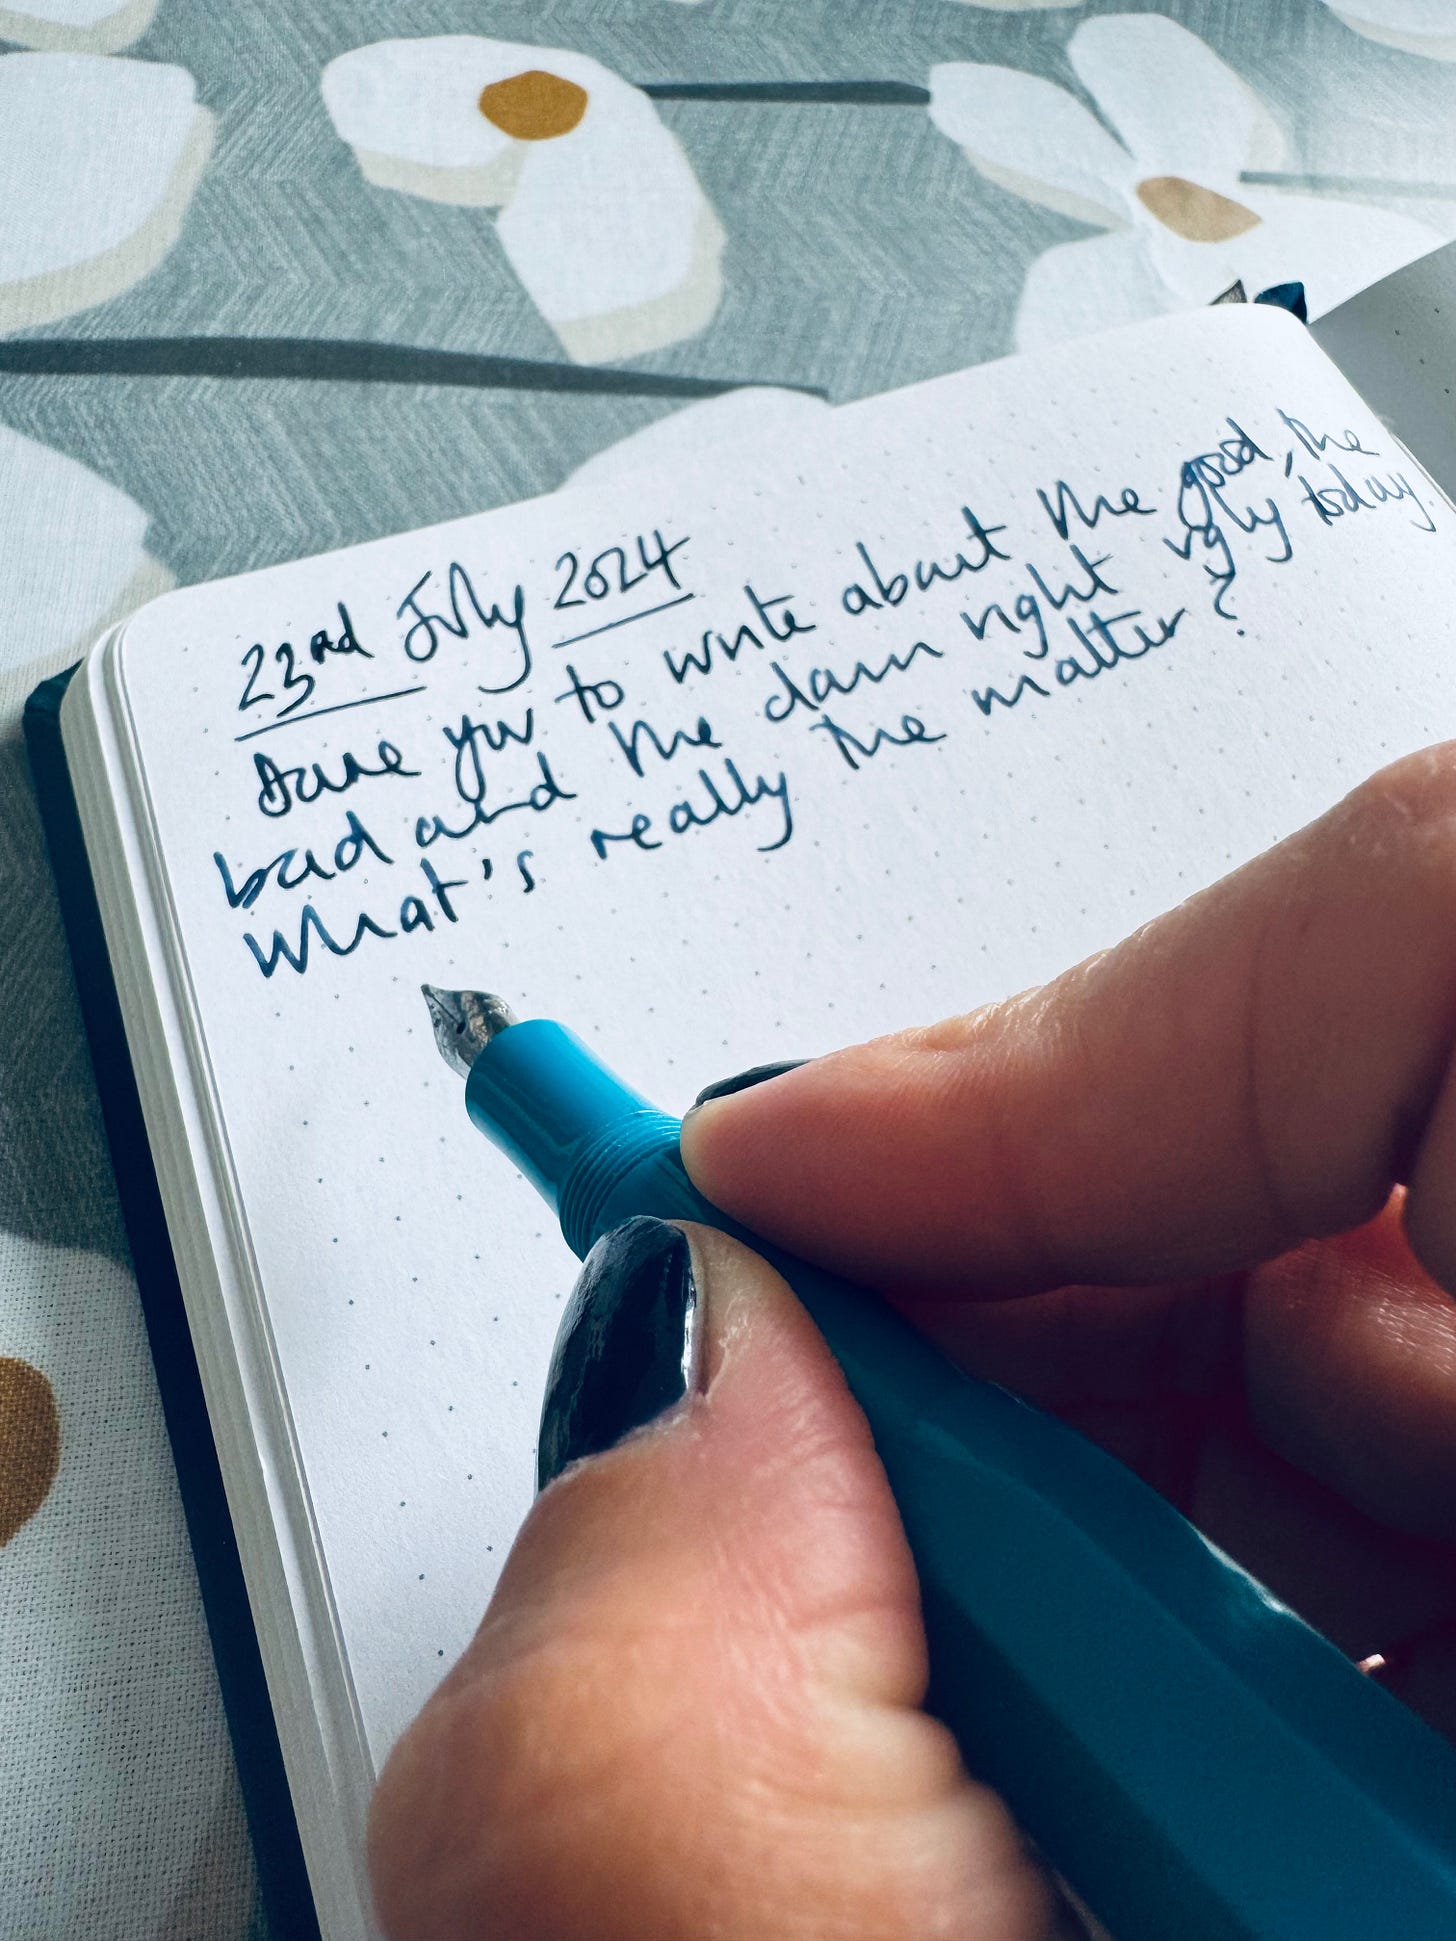 23rd July 2024
Dare you to write about the good, the
bad and the damn right ugly today.
What's really the matter?